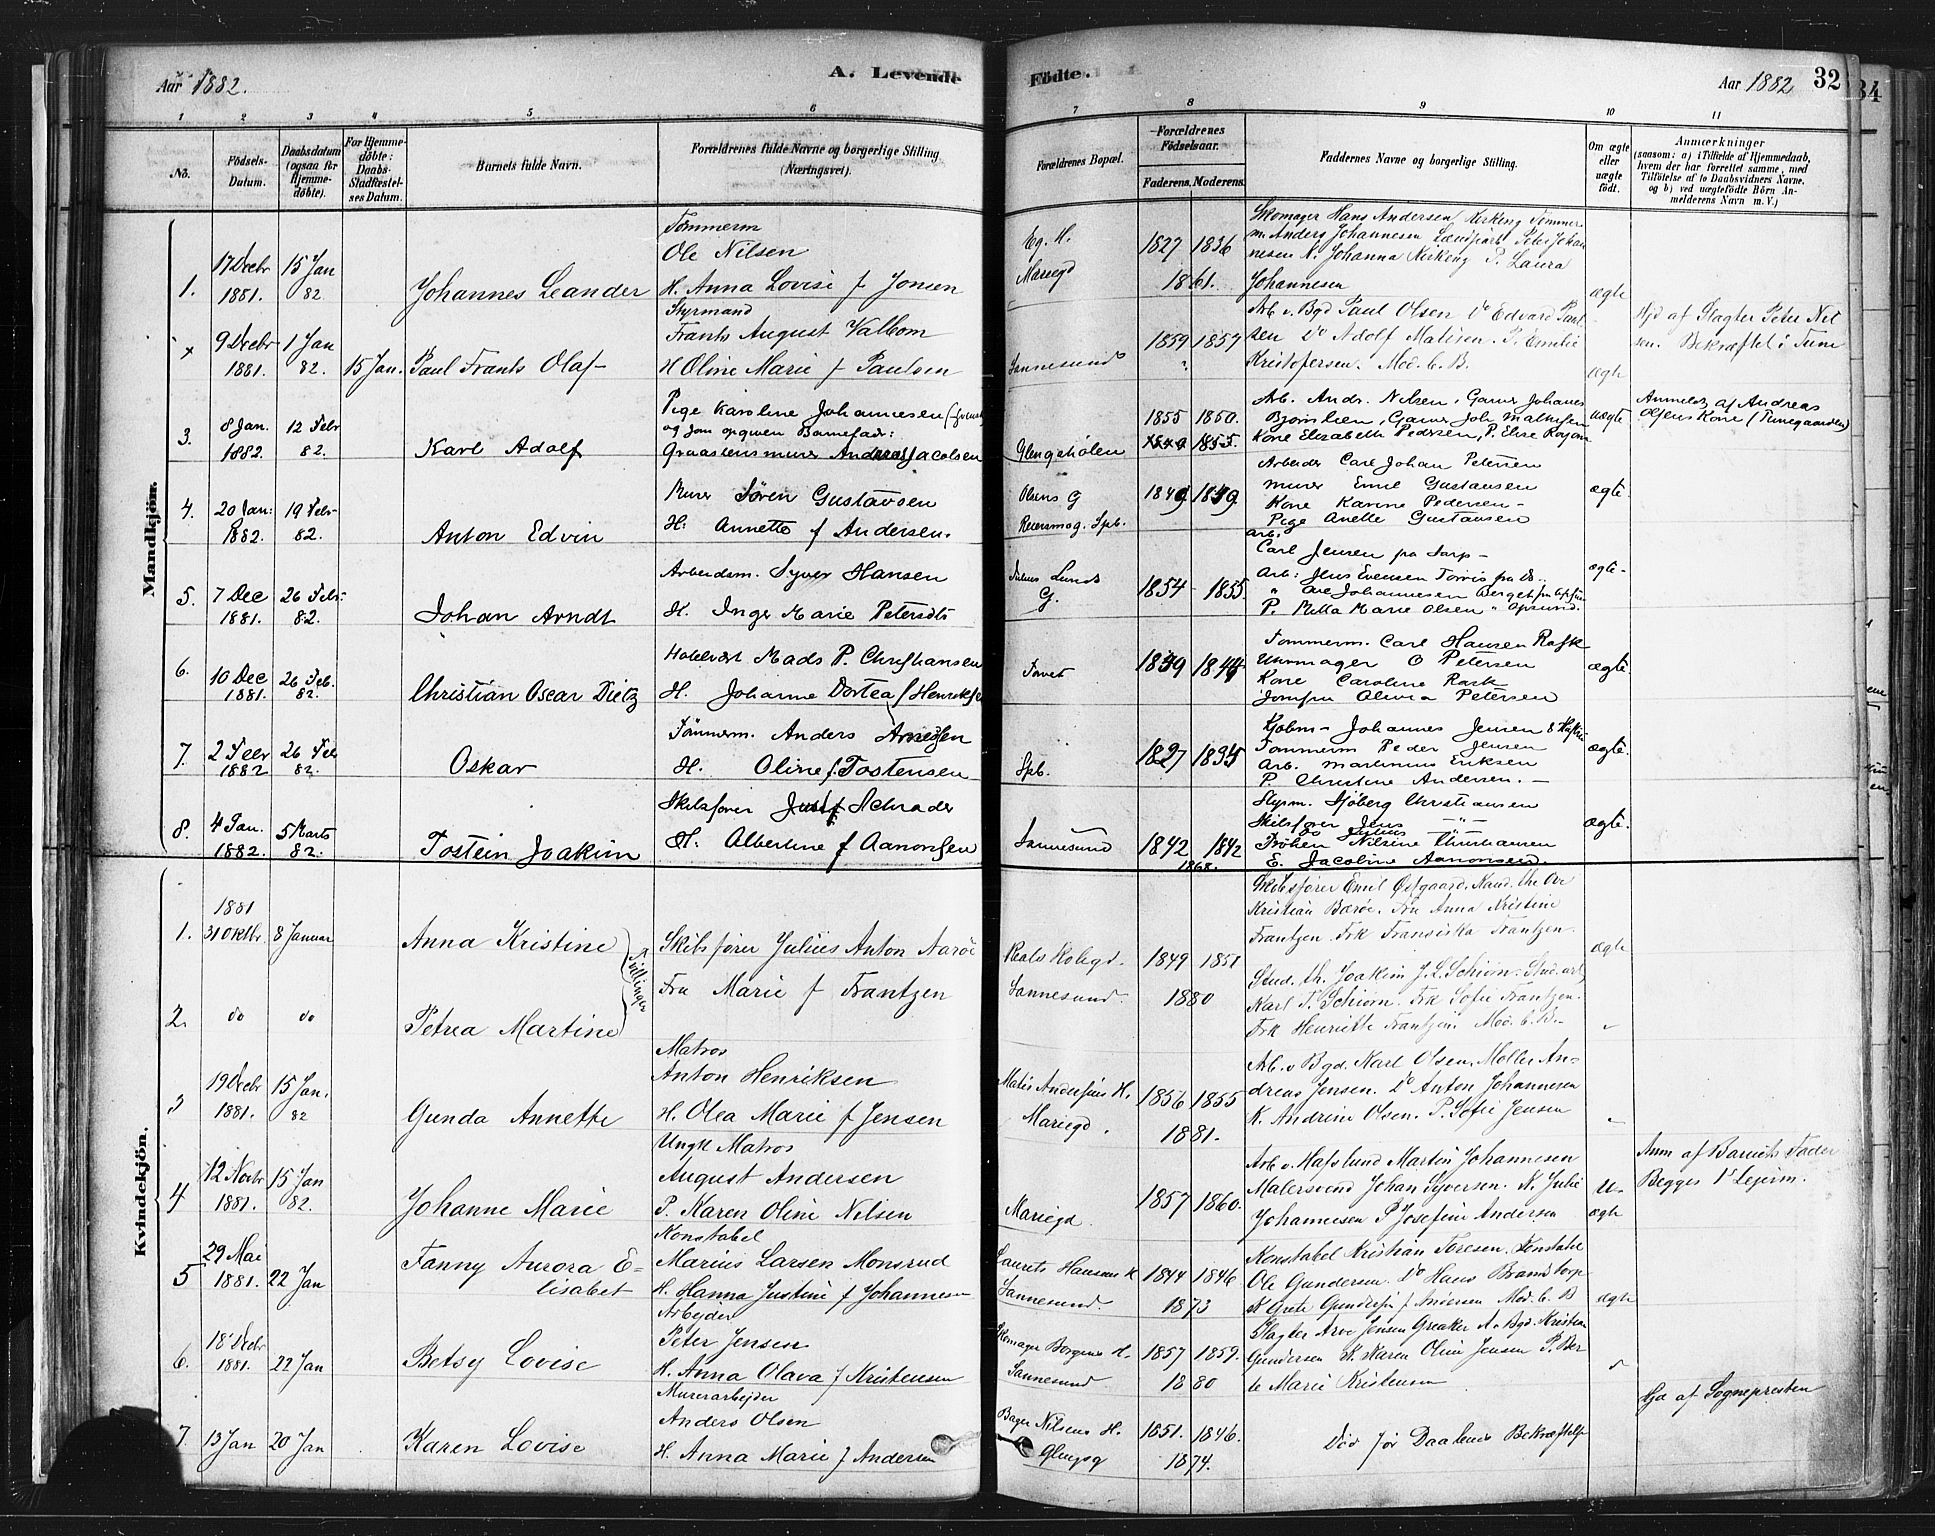 Aar 1882.
A. Levende
Födte.
Aar 1882
32
34
1 2 3 4 5 6 7 8 9 10 11
No.
Födsels-Datum.
Daabsdatum (ogsaa for Hjemme-döbte).
For Hjemme-döbte: Daabs-Stadfæstel-ses Datum.
Barnets fulde Navn.
Forældrenes fulde Navne og borgerlige Stilling (Næringsvei).
Forældrenes Bopæl.
Forældrenes Födselsaar.
Faderens. Moderens.
Faddernes Navne og borgerlige Stilling.
Om ægte eller uægte födt.
Anmærkninger
(saasom: a) i Tilfælde af Hjemmedaab,
hvem der har forrettet samme, med
Tilföielse af to Daabsvidners Navne,
og b) ved uægtefödte Börn An-
melderens Navn m. V.)
Mandkjön.
1. 17 Decbr 1881. 15 Jan 82
Johannes Leander
Tømmerm
Ole Nilsen
H. Anna Lovise f Jonsen
Eg. H.
Mariegd
1827 1836
1861.
Skomager Hans Andersen Kirkeng Tømmer
m Anders Johannesen Landfart Peter Johan
nesen K. Johanna Kirkeng P. Laura
Johannesen
ægte
x 9 Decbr 1881. 1 Jan 82. 15 Jan.
Paul Frants Olaf
Styrmand
Frants August Valbom
H Oline Marie f Paulsen
Sannesund
1859 1857
Arb. v. Bgd Paul Olsen Do Edvard Paul
sen Do Adolf Matisen. P. Emilie
Kristofersen. Mod. b. B.
ægte
Hjd af Slagter Peter Nil
sen. Bekræftet i Tune
3. 8 Jan. 1882. 12 Febr 82.
Karl Adolf
Pige Karoline Johannesen
og som opgiven Barnefader:
Graastensmurer Anders Jacobsen
Glengshølen
1855 1860.
1849 1855.
Arb. Andr. Nilsen, Gaardm Johanes
Bjørnlien, Gaardm Joh. Mathisen
Kone Elisabeth Pedersen, P. Elise
uægte
Anmeldt af Andreas
Olsens Kone (Tunegaarden)
4. 20 Jan: 1882. 19 Febr 82.
Anton Edvin
Murer Søren Gustavsen
H. Annette f Andersen.
Olsens G
Spb.
1849 1849.
Arbeider Carl Johan Petersen
Murer Emil Gustausen
Kone Karine Pedersen -
Pige Anette Gustausen
ægte.
5. 7 Dec 1881. 26 Febr: 82.
Johan Arndt
Arbeidsm. Syver Hansen
H. Inger Marie Petersdt
Lunds
G.
1854 - 1855
Arb.
Carl Jensen pa Sarp -
Arb: Jens Evensen Torvis pa Do.
" Ole Johannesen Berget
P. Mella Marie Olsen " Opsund.
ægte-
6. 10 Dec 1881. 26 Feb. 82.
Christian Oscar Dietz
Hotelvært Mads P. Christiansen
H. Johanne Dortea f Henriksen
Torvet
1849 1844
Tømmerm. Carl Hansen Rask
Uhrmager O Petersen
Kone Caroline Rask
Jomfru Olivia Petersen
ægte.
7. 2 Febr 1882 26 Feb 82.
Oskar
Tømmerm. Anders Arnesen
H. Oline f. Tostensen
Spb.
1827 1835
Kjøbm- Johannes Jensen
Tømmerm Peder Jensen
Arb. Martinius Eriksen
P. Christine Andersen. -
ægte.
8. 4 Jan. 1882. 5 Marts 82.
Tostein Joakim
Skibsfører Schrader
H. Albertine f Aanonsen
Sannesund
1842 1842
1868.
Styrm. Sjöberg Christiansen
Skibsfører Jens -"-
Frøken Nilsine Christiansen
E. Jacobine Aanonsen.
ægte.
Kvindekjön.
1. 1881 31 Oktbr. 8 Januar
Anna Kristine
Tvillinger
Skibsfører Julius Anton Aarøe
Fru Marie f Frantzen
Sannesund.
1849 1851
1880
Skibsfører Emil Østgaard. Kand. the
Kristian Bærøe. Fru Anna Kristine
Frantzen. Frk Fransiska Frantzen.
ægte
2. do do
Petrea Martine
Stud. th. Joakim J. L. Schiørn. Stud. art
Karl T. Schiørn. Frk Sofie Frantzen.
Frk Henriette Frantzen. Mod. b. B.-
"
3 19 Decbr 1881. 15 Jan. 82
Gunda Annette
Matros
Anton Henriksen
H. Olea Marie f Jensen
H.
Mariegd.
1856 1855
1881.
Arb. v Bgd. Karl Olsen. Møller An-
dreas Jensen. Do Anton Johannesen
K. Andrine Olsen. P. Sofie Jensen
"
4 12 Novbr 1881. 15 Jan 82.
Johanne Marie
Ungk Matros
August Andersen
P. Karen Oline Nilsen
Mariegd.
1857 1860.
Arb. v. Hafslund Martin Johannesen
Malersvend Johan Syversen. K. Julie
Johannesen P Josefine Andersen
U-
ægte
Anm af Barnets Fader
Begges 1ste Lejerm.
5 29 Mai 1881. 22 Jan
Fanny Aurora E=
lisabet
Konstabel
Marius Larsen Monsrud
H. Hanna Justine f Johannesen
Laurets Hansens H
Sannesund.
1844 1846
1873
Konstabel Kristian Toresen. Konstabel
Ole Gundersen. Do Hans Bramstorp
K Grete Gundersen f Andersen Mod. b. B
ægte
6. 18 Decbr 1881. 22 Jan
Betsy Lovise
Arbejder
Peter Jensen
H. Anna Olava f Kristensen
Skomager Borgens H.
Sannesund
1857 1859.
1880
Slagter Arve Jensen Greaker A v Bgd. Kristian
Gundersen K. Karen Oline Jensen P. Ber
te Marie Kristensen
"
7. 13 Jan 20 Jan
Karen Lovise
Murerarbejder
Anders Olsen
H. Anna Marie f Andersen
Bager Nilsens H.
Glengsg
1851. 1846.
1874.
Død før Daabens Bekræftelse
Hjd af Sognepresten